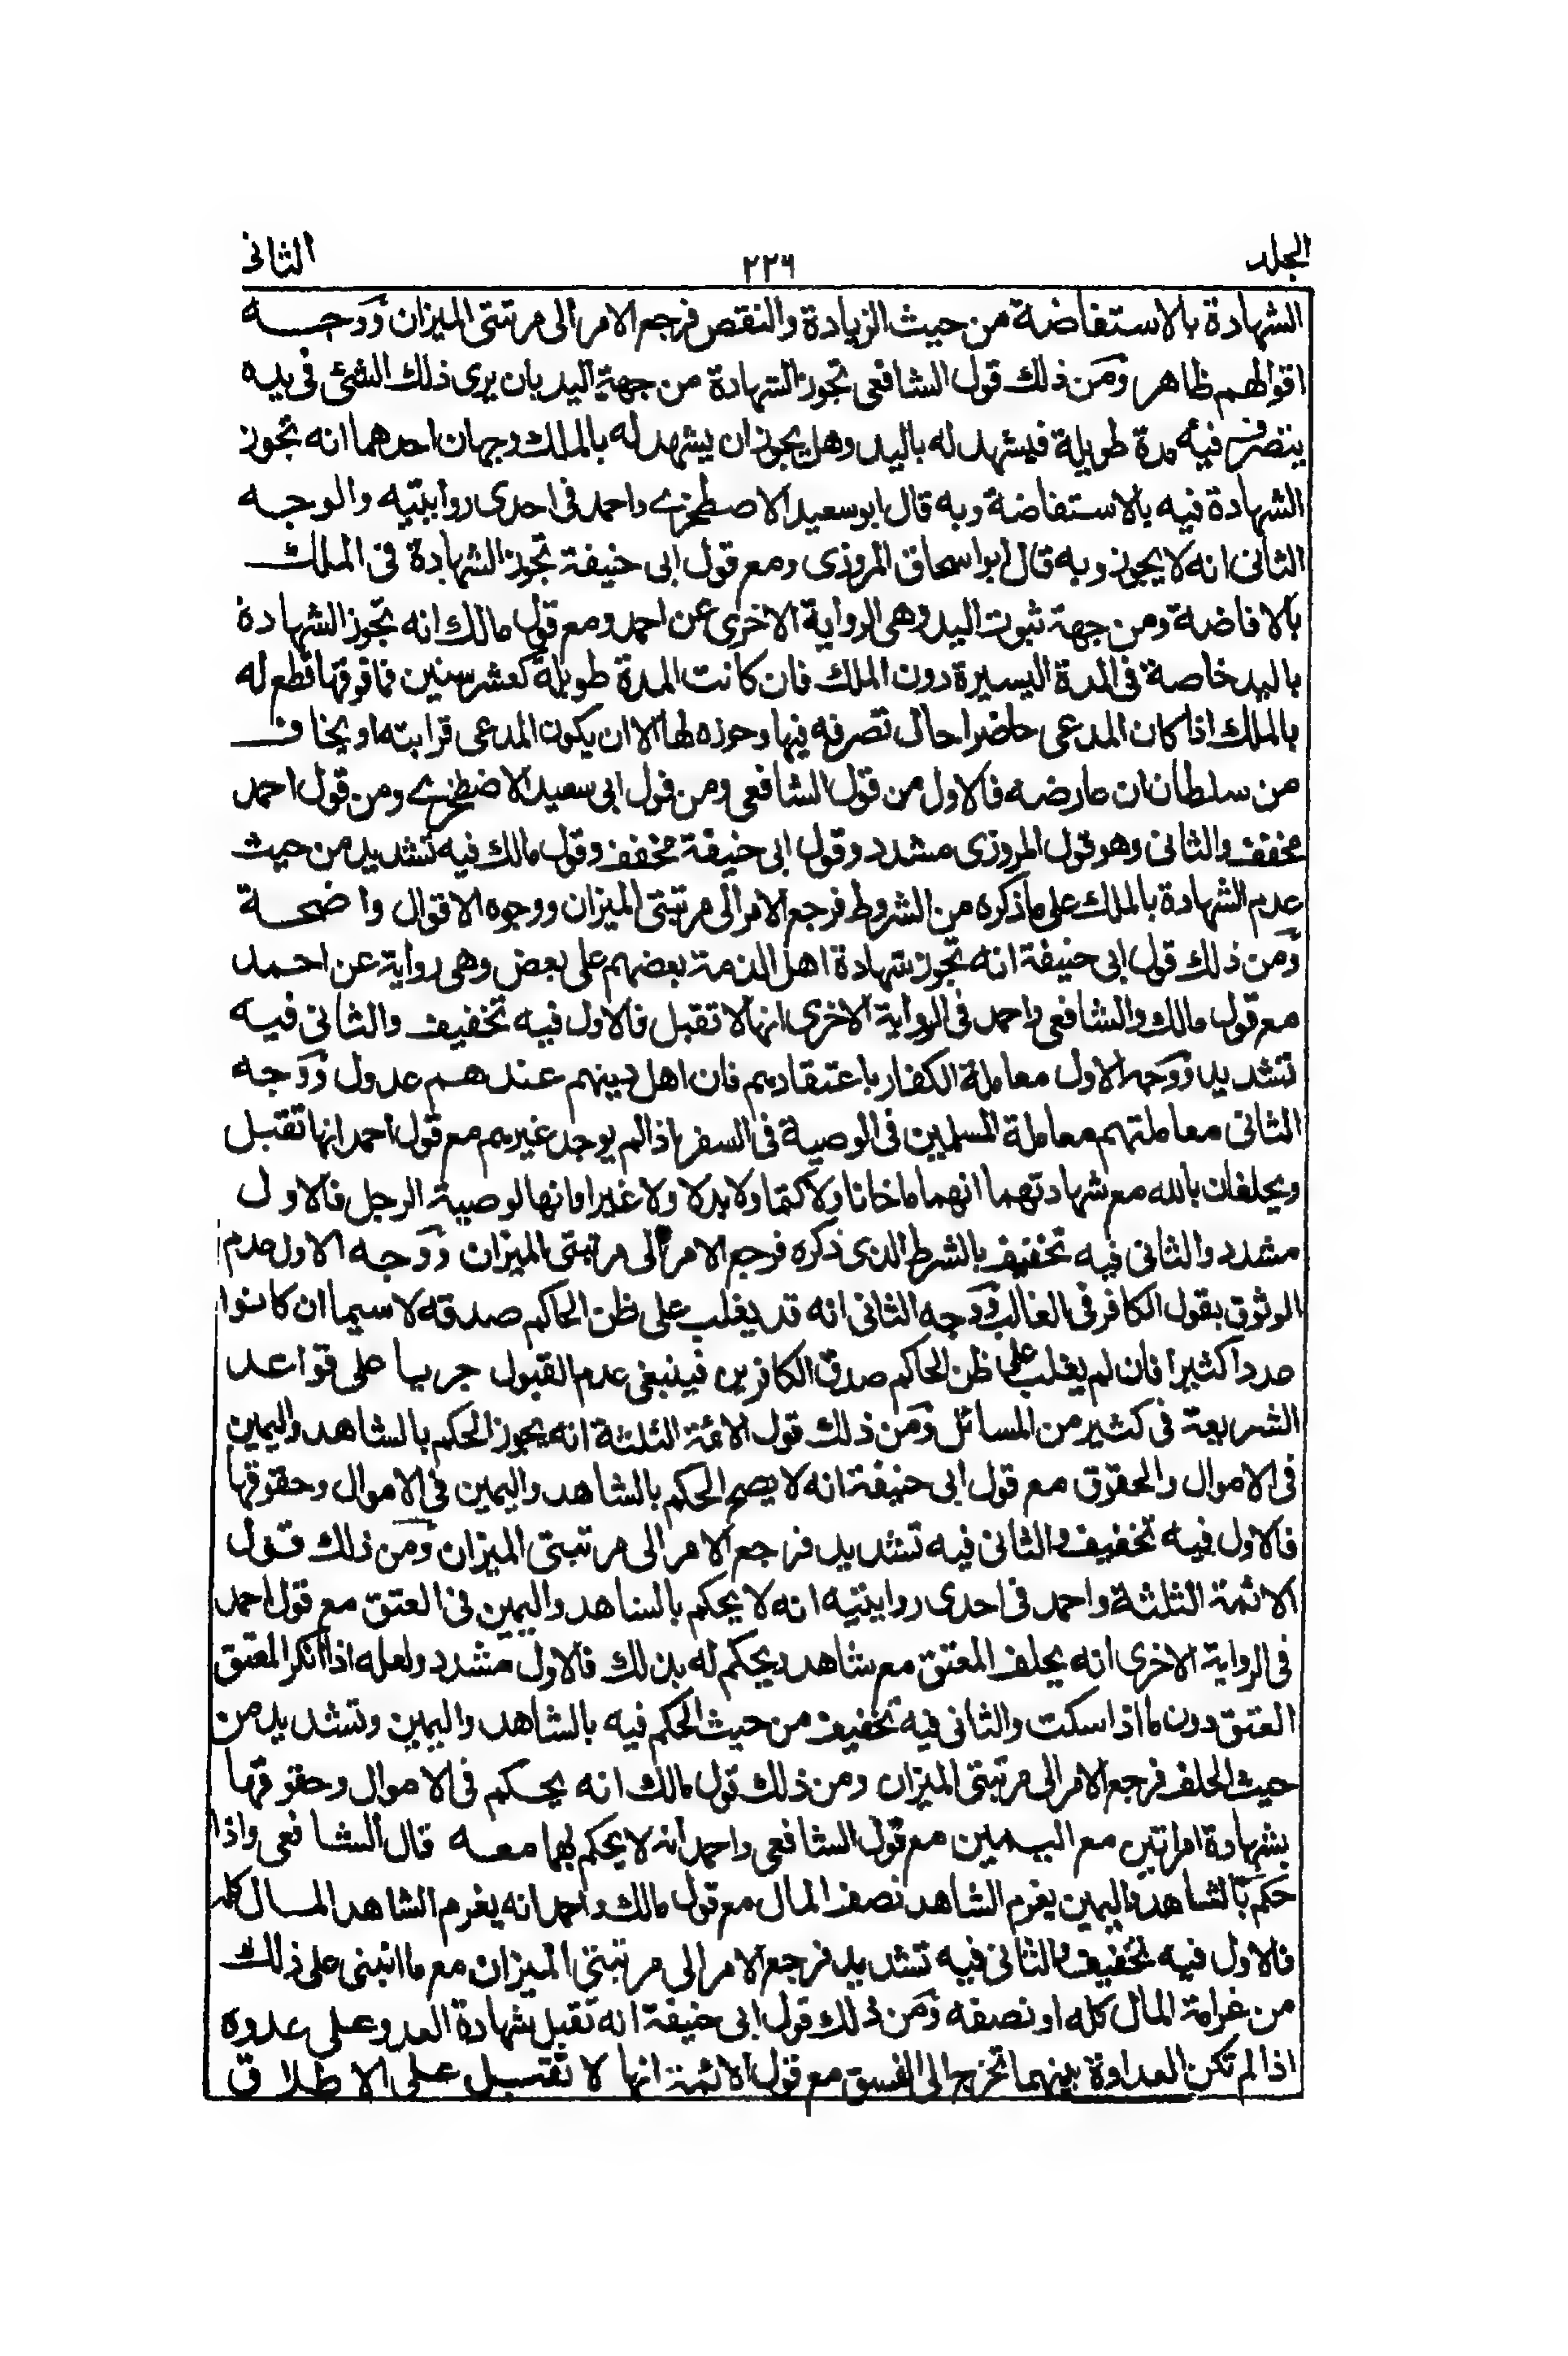 الجلد ٢٢٦ الثانى
الشهادة بالاستفاضة من حيث الزيادة والنقص فرجع الامر الى مرتبتى الميزان ووجه
اقوالهم ظاهر ومن ذلك قول الشافعى تجوز الشهادة من جهة اليد بان يرى ذلك الشئ فى يده
يتصرف فيه مدة طويلة فيشهد له باليد وهل يجوز ان يشهد له بالملك وجهان احدهما انه تجوز
الشهادة فيه بالاستفاضة وبه قال ابو سعيد الاصطخرى واحمد فى احدى روايتيه والوجه
الثانى انه لا يجوز وبه قال ابو اسحاق المروزى ومع قول ابى حنيفة تجوز الشهادة فى الملك
بالافاضة ومن جهة ثبوت اليد وهى الرواية الاخرى عن احمد ومع قول مالك انه تجوز الشهادة
باليد خاصة فى المدة اليسيرة دون الملك فان كانت المدة طويلة كعشر سنين فما فوقها قطع له
بالملك اذا كان المدعى حاضرا حال تصرفه فيها وحوزه لها الا ان يكون المدعى قرابته او يخاف
من سلطان ان عارضه فالاول من قول الشافعى ومن قول ابى سعيد الاضطخرى ومن قول احمد
مخفف والثانى وهو قول المروزى مشدد وقول ابى حنيفة مخفف وقول مالك فيه تشديد من حيث
عدم الشهادة بالملك على ماذكره من الشروط فرجع الامر الى مرتبتى الميزان ووجوه الاقوال واضحة
ومن ذلك قول ابى حنيفة انه تجوز شهادة اهل الذمة بعضهم على بعض وهى رواية عن احمد
مع قول مالك والشافعى واحمد فى الرواية الاخرى انها لا تقبل فالاول فيه تخفيف والثانى فيه
تشديد ووجه الاول معاملة الكفار باعتقادهم فان اهل دينهم عندهم عدول ووجه
الثانى معاملتهم معاملة المسلمين فى الوصية فى السفر اذا لم يوجد غيرهم مع قول احمد انها تقبل
ويحلفان بالله مع شهادتهما انهما ما خانا ولا كتما ولا بدلا ولا غيرا وانها لوصية الرجل فالاول
مشدد والثانى فيه تخفيف بالشرط الذى ذكره فرجع الامر الى مرتبتى الميزان ووجه الاول عدم
الوثوق بقول الكافر فى الغالب ووجه الثانى انه قد يغلب على ظن الحاكم صدقه لا سيما ان كانوا
عددا كثيرا فان لم يغلب على ظن الحاكم صدق الكافرين فينبغى عدم القبول جريا على قواعد
الشريعة فى كثير من المسائل ومن ذلك قول الائمة الثلثة انه يجوز الحكم بالشاهد واليمين
فى الاموال والحقوق مع قول ابى حنيفة انه لا يصح الحكم بالشاهد واليمين فى الاموال وحقوقها
فالاول فيه تخفيف والثانى فيه تشديد فرجع الامر الى مرتبتى الميزان ومن ذلك قول
الائمة الثلثة واحمد فى احدى روايتيه انه لا يحكم بالشاهد واليمين فى العتق مع قول احمد
فى الرواية الاخرى انه يحلف المعتق مع شاهد ويحكم له بذلك فالاول مشدد ولعله اذا انكر المعتق
العتق دون ما اذا سكت والثانى فيه تخفيف من حيث الحكم فيه بالشاهد واليمين وتشديد من
حيث الحلف فرجع الامر الى مرتبتى الميزان ومن ذلك قول مالك انه يحكم فى الاموال وحقوقها
بشهادة امراتين مع اليمين مع قول الشافعى واحمد انه لا يحكم بهما معه قال الشافعى واذا
حكم بالشاهد واليمين يغرم الشاهد نصف المال مع قول مالك واحمد انه يغرم الشاهد المال كله
فالاول فيه تخفيف والثانى فيه تشديد فرجع الامر الى مرتبتى الميزان مع ما انبنى على ذلك
من غرامة المال كله او نصفه ومن ذلك قول ابى حنيفة انه تقبل شهادة العدو على عدوه
اذا لم تكن العداوة بينهما تخرج الى الفسق مع قول الائمة انها لا تقبل على الاطلاق